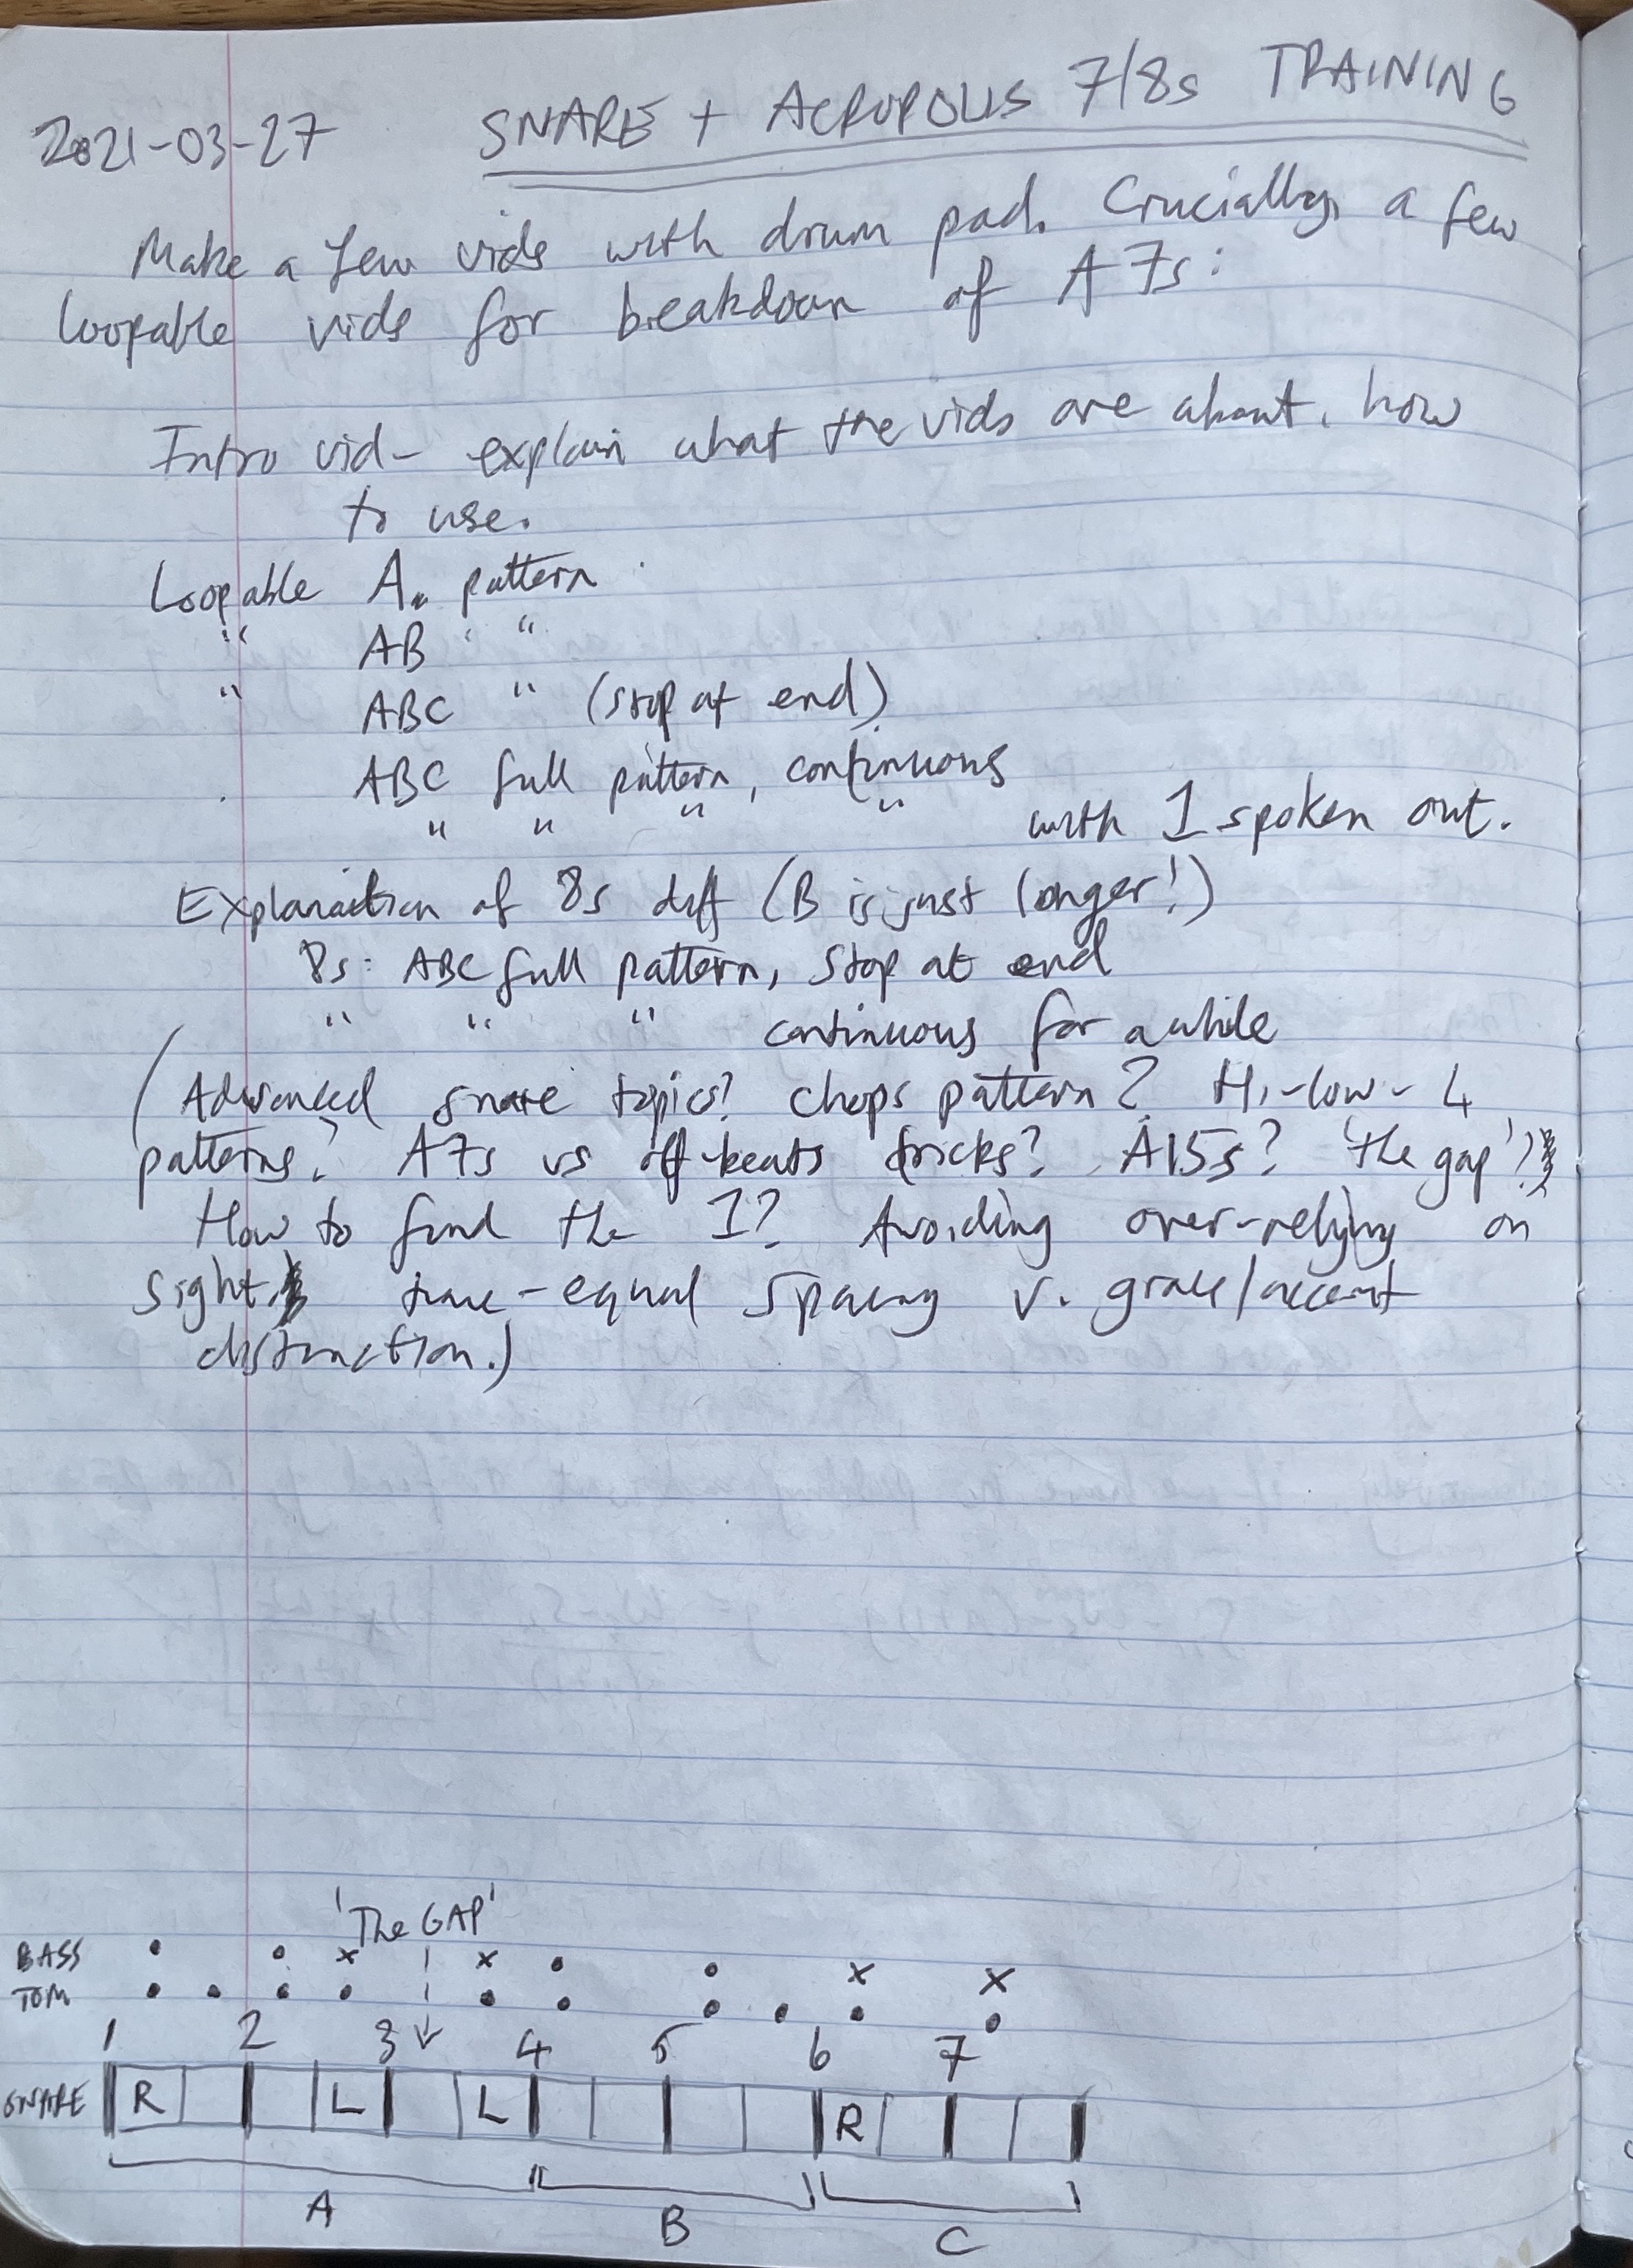 2021-03-27 SNARE + ACROPOLIS 7/8s TRAINING
Make a few vids with drum pad. Crucially, a few
loopable vids for breakdown of A7s:
Intro vid - explain what the vids are about, how
to use.
Loopable A pattern
" AB "
" ABC " (stop at end)
ABC full pattern, continuous
" " " " with 1 spoken out.
Explanation of 8s diff (B is just longer!)
8s: ABC full pattern, stop at end
" " " continuous for a while
(Advanced snare topics? chops pattern? Hi-low-4
patterns? A7s vs off-beats tricks? A15s? 'the gap'?
How to find the 1? Avoiding over-relying on
sight. time-equal spacing v. grace/accent
distinction.)
'The GAP'
BASS • • x x • • x x
TOM • • • • • • • • • •
1 2 3 4 5 6 7
SNARE R L L R
A B C